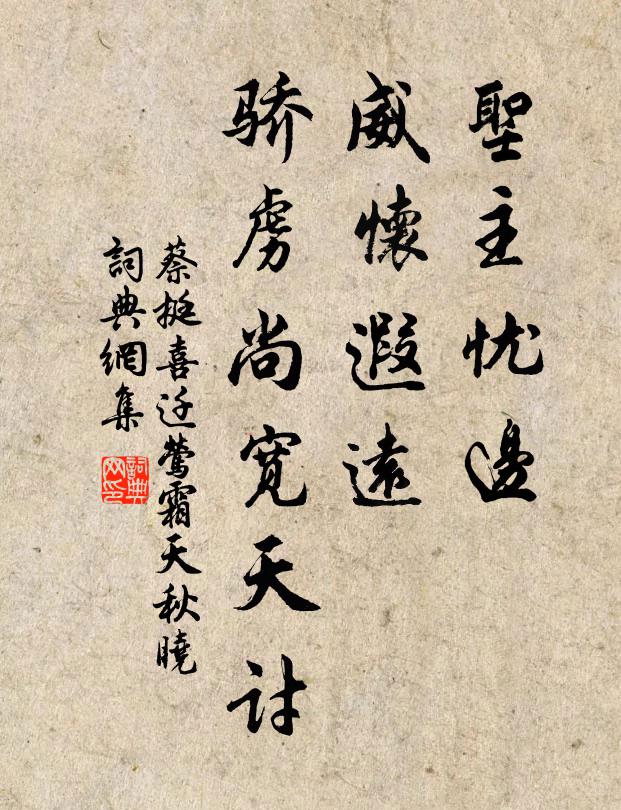 聖主忧邊
威懷遐遠
骄虏尚寬天討
蔡挺喜迁鶯霜天秋曉
詞典網集
詞典网印